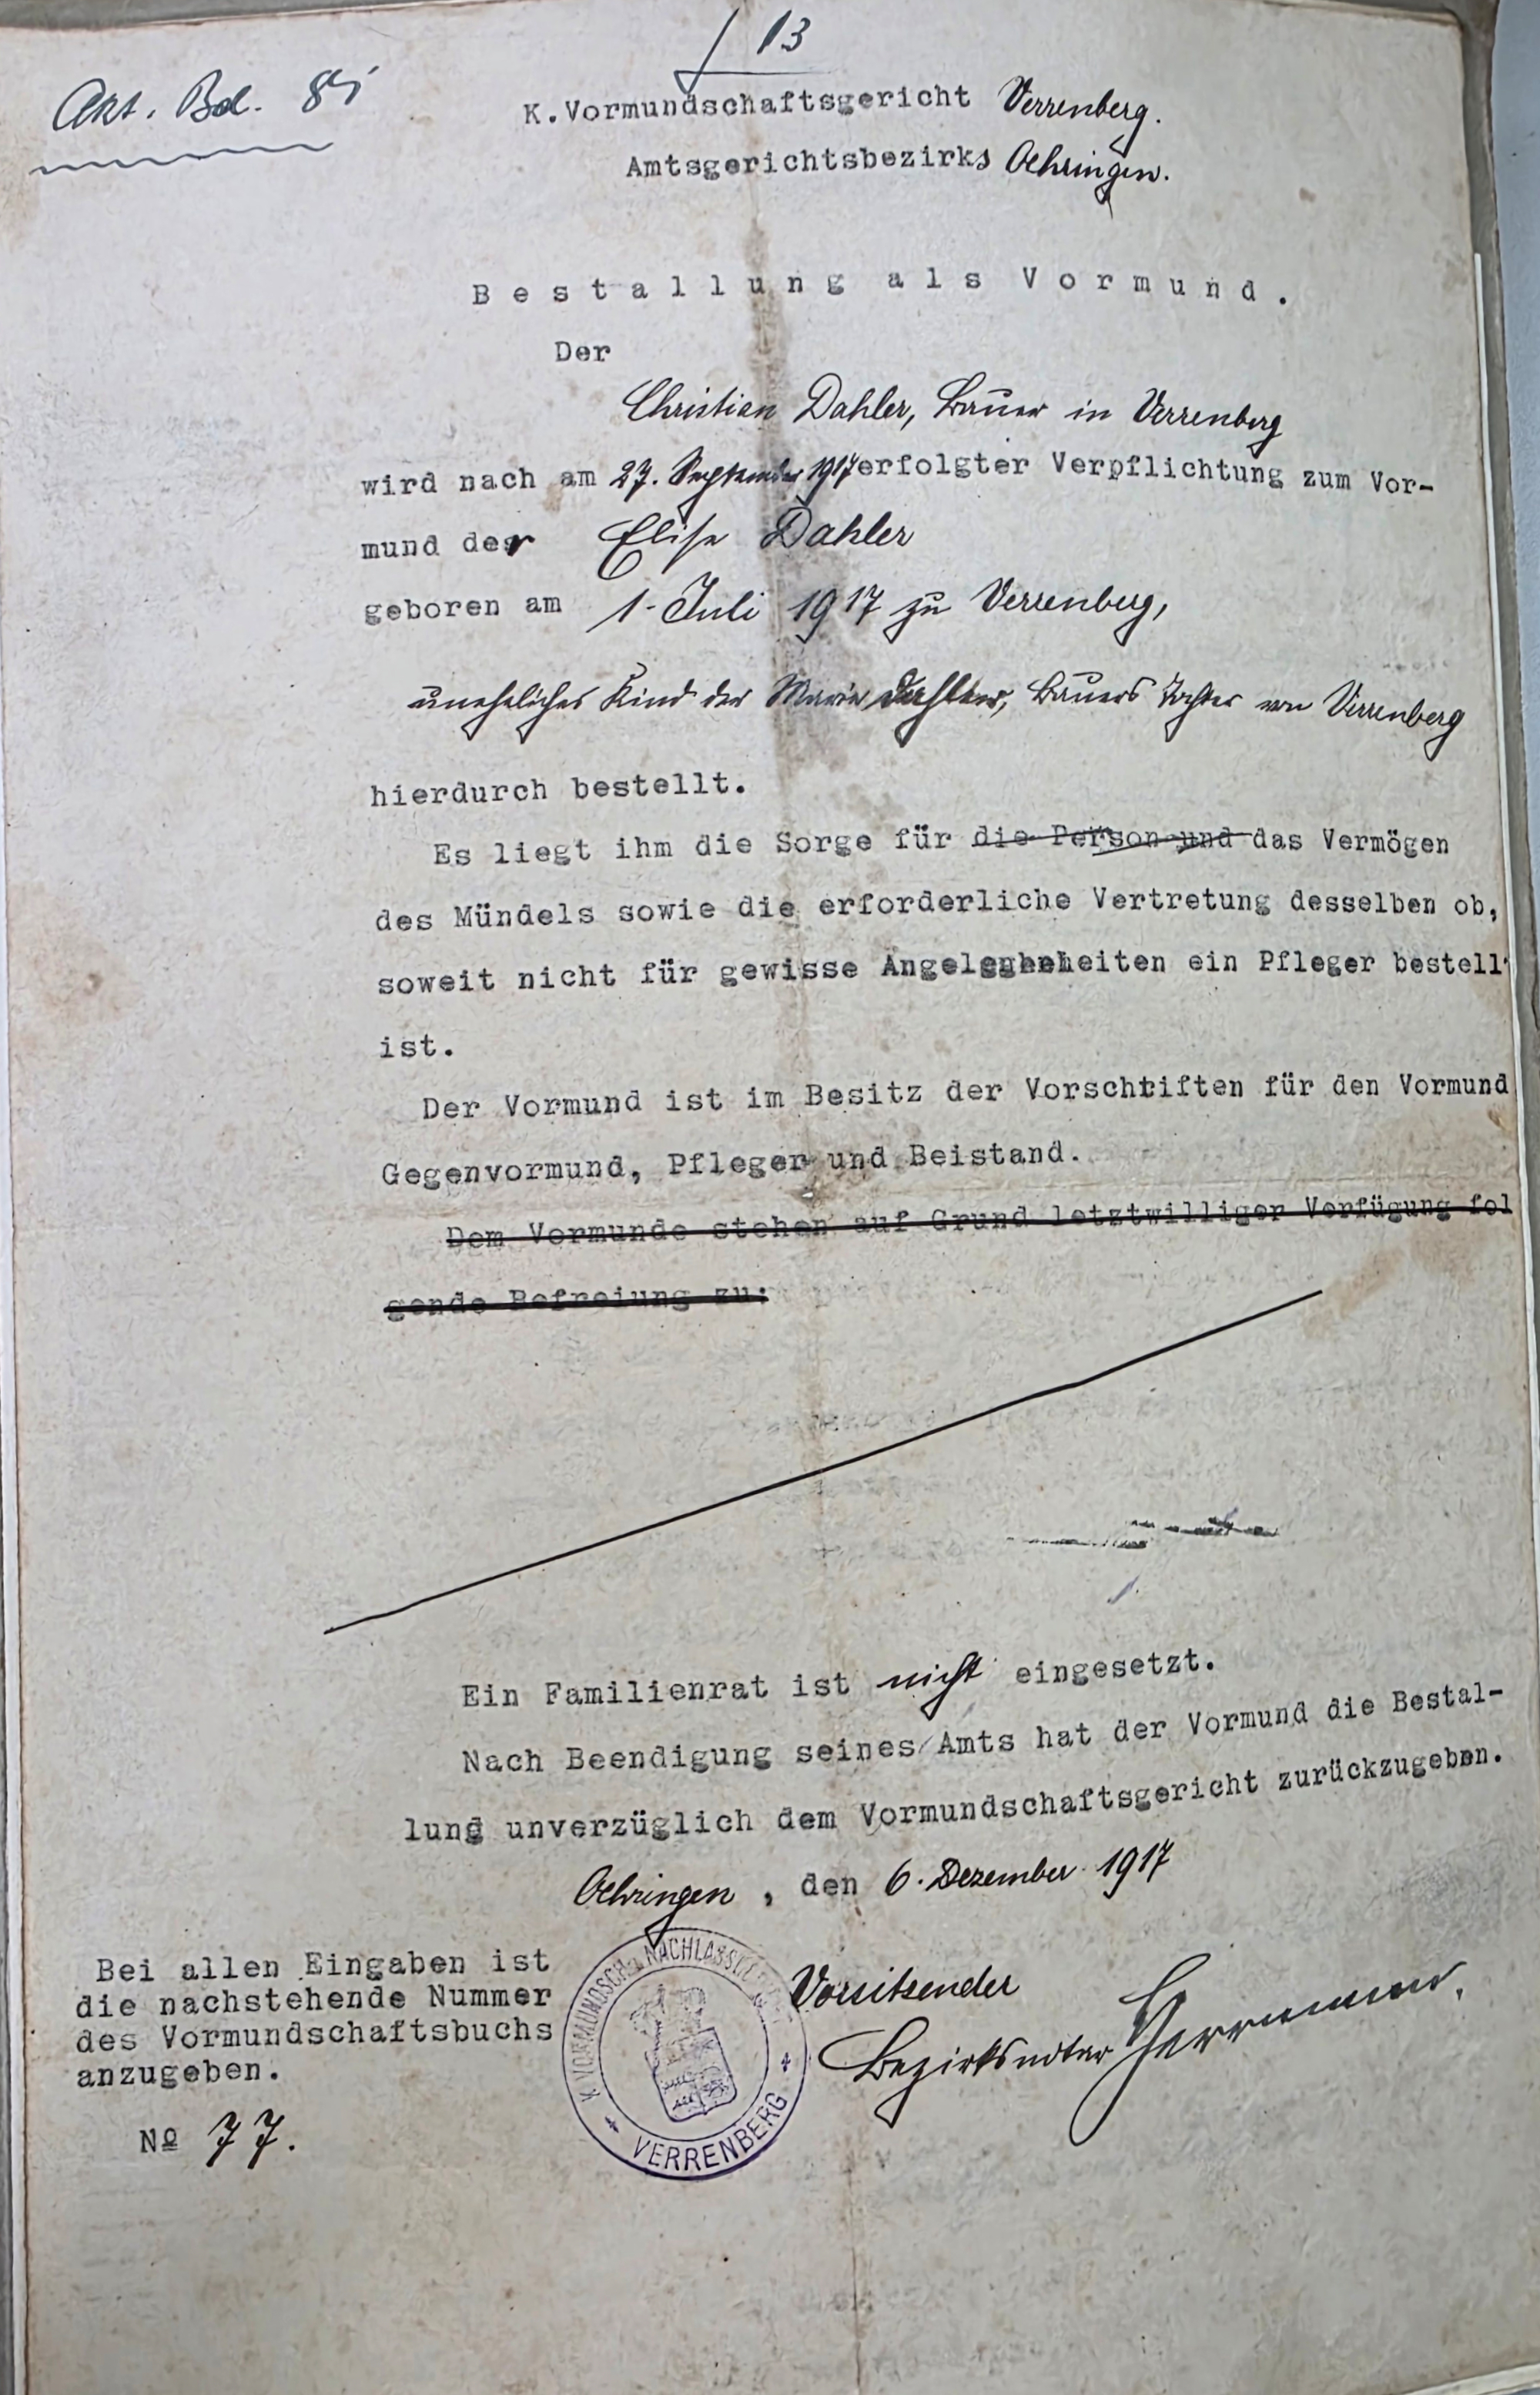 13
Akt. Bd.
K.Vormundschaftsgericht Verrenberg.
Amtsgerichtsbezirks Oehringen.
Bestallung als Vormund.
Der
Christian Dahler, Bauer in Verrenberg
wird nach am 27. September 1917 erfolgter Verpflichtung zum Vor-
mund der Elise Dahler
geboren am 1. Juli 1917 zu Verrenberg,
uneheliches Kind der Marie Dahler, Bauers Tochter von Verrenberg
hierdurch bestellt.
Es liegt ihm die Sorge für die Person und das Vermögen
des Mündels sowie die erforderliche Vertretung desselben ob,
soweit nicht für gewisse Angelegenheiten ein Pfleger bestellt
ist.
Der Vormund ist im Besitz der Vorschriften für den Vormund
Gegenvormund, Pfleger und Beistand.
Dem Vormunde stehen auf Grund letztwilliger Verfügung fol
gende Befreiung zu:
Ein Familienrat ist nicht eingesetzt.
Nach Beendigung seines Amts hat der Vormund die Bestal-
lung unverzüglich dem Vormundschaftsgericht zurückzugeben.
Oehringen, den 6. Dezember 1917
Bei allen Eingaben ist
die nachstehende Nummer
des Vormundschaftsbuchs
anzugeben.
No 77.
K. VORMUNDSCH. u. NACHLASSGERICHT
VERRENBERG
Vorsitzender
Bezirksnotar Herrmann.